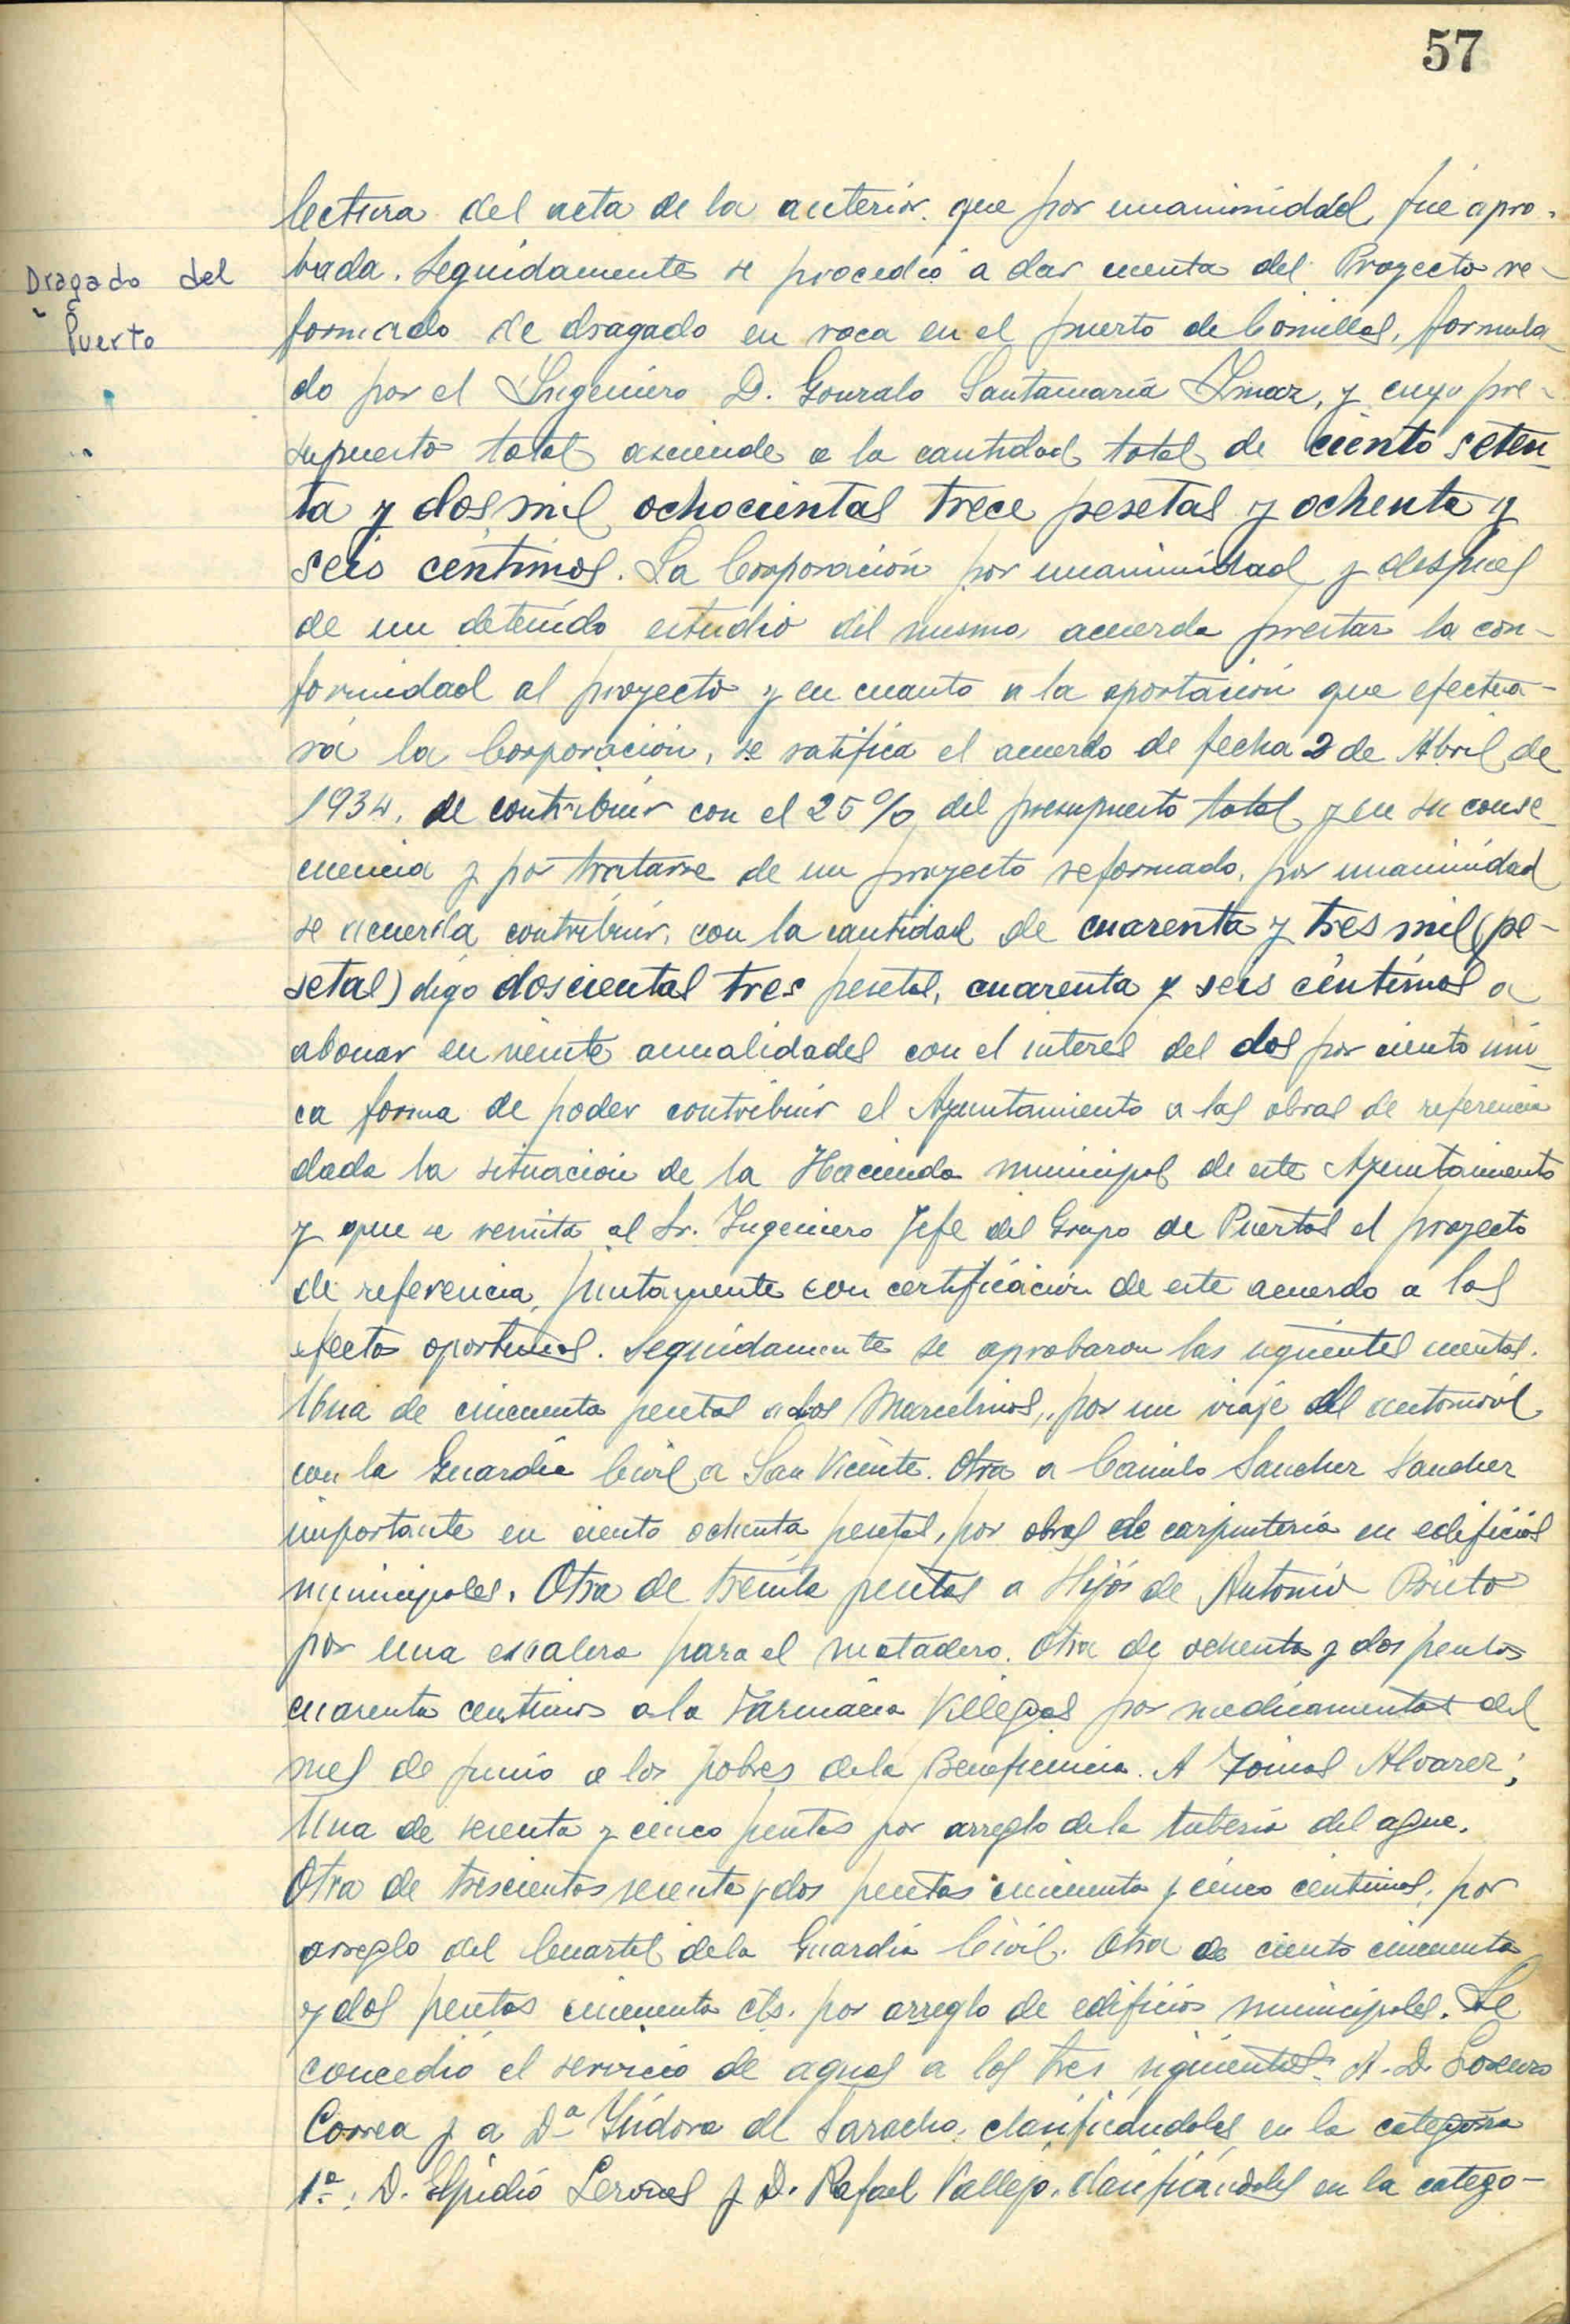 57
Dragado del
Puerto
lectura del acta de la anterior que por unanimidad, fué apro-
bada. Seguidamente se procedió a dar cuenta del Proyecto re-
formado de dragado en roca en el puerto de Comillas, formula-
do por el Ingeniero D. Gonzalo Santamaría Imaz, y cuyo pre-
supuesto total asciende a la cantidad total de ciento seten-
ta y dos mil ochocientas trece pesetas y ochenta y
seis céntimos. La Corporación por unanimidad y después
de un detenido estudio del mismo acuerda prestar la con-
formidad al proyecto y en cuanto a la aportación que efectua-
rá la Corporación, se ratifica el acuerdo de fecha 2 de Abril de
1934, de contribuir con el 25% del presupuesto total y en su conse-
cuencia y por tratarse de un proyecto reformado, por unanimidad
se acuerda contribuir, con la cantidad de cuarenta y tres mil (pe-
setas) digo doscientas tres pesetas, cuarenta y seis céntimos a
abonar en veinte anualidades con el interes del dos por ciento úni-
ca forma de poder contribuir el Ayuntamiento a las obras de referencia
dada la situación de la Hacienda municipal de este Ayuntamiento
y que se remita al Sr. Ingeniero Jefe del Grupo de Puertos el proyecto
de referencia, juntamente con certificación de este acuerdo a los
efectos oportunos. Seguidamente se aprobaron las siguientes cuentas.
Una de cincuenta pesetas a los Marcelinos, por un viaje del automovil
con la Guardia Civil a San Vicente. Otra a Camilo Sanchez Sanchez
importante en ciento ochenta pesetas, por obras de carpinteria en edificios
municipales. Otra de treinta pesetas a Hijos de Antonio Prieto
por una escalera para el matadero. Otra de ochenta y dos pesetas
cuarenta centimos a la Farmacia Villegas por medicamentos del
mes de junio a los pobres de la Beneficencia. A Tomas Alvarez;
Una de sesenta y cinco pesetas por arreglo de la tuberia del agua.
Otra de trescientas sesenta y dos pesetas cincuenta y cinco centimos, por
arreglo del Cuartel de la Guardia Civil. Otra de ciento cincuenta
y dos pesetas cincuenta cts. por arreglo de edificios municipales. Se
concedió el servicio de aguas a los tres siguientes: A. D. Lorenzo
Correa y a Dª Ysidora de Saracho, clasificándoles en la categoria
1ª. D. Elpidio Lerones y D. Rafael Vallejo, clasificándoles en la catego-